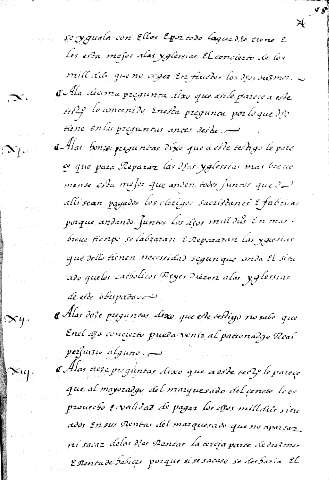 se yguala con ellos e por todo lo que dho tiene e
les esta mejor a las yglesias el concierto de los
mill dºs que no coger en frutos los dhos diezmos
X. A la decima pregunta dixo que a este parece a este
testigo lo contenido en esta pregunta por lo que dho
tiene en las preguntas antes desta
XI. A las honze preguntas dixo que a este testigo le pare
ce que para Reparar las dhas yglesias mas breve
mente esta mejor que anden todos juntos que de
alli sean pagados los clerigos sacristanes e fabricas
porque andando juntos los dhos mill dºs en mas
breve tiempo se labraran e Repararan las yglesias
que dello tienen necessidad segun que anda el
que los catholicos Reyes dieron a las yglesias
de este obispado
XII. A las doze preguntas dixo que este testigo no sabe que
en el dho concierto pueda venir al patronadgo Real
perjuizio alguno
XIII. A las treze preguntas dixo que a este testigo le parece
que al mayoradgo del marquesado del cenete le es
provecho e utilidad de pagar los dhos mill dºs situ
ados en sus Rentas del marquesado que no apartar
ni sacar de las dhas Rentas la tercia parte de diezmos
e Renta de habices porque si se sacase se desharia el